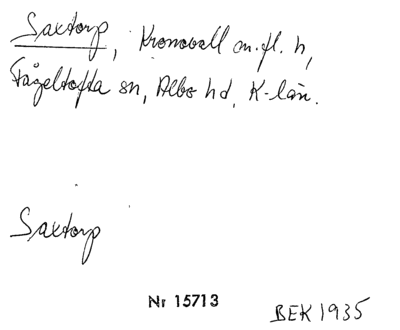 Saxtorp, Kronovall m.fl. h,
Fågeltofta sn, Albo hd, K-län.
Saxtorp
Nr 15713
BEK 1935